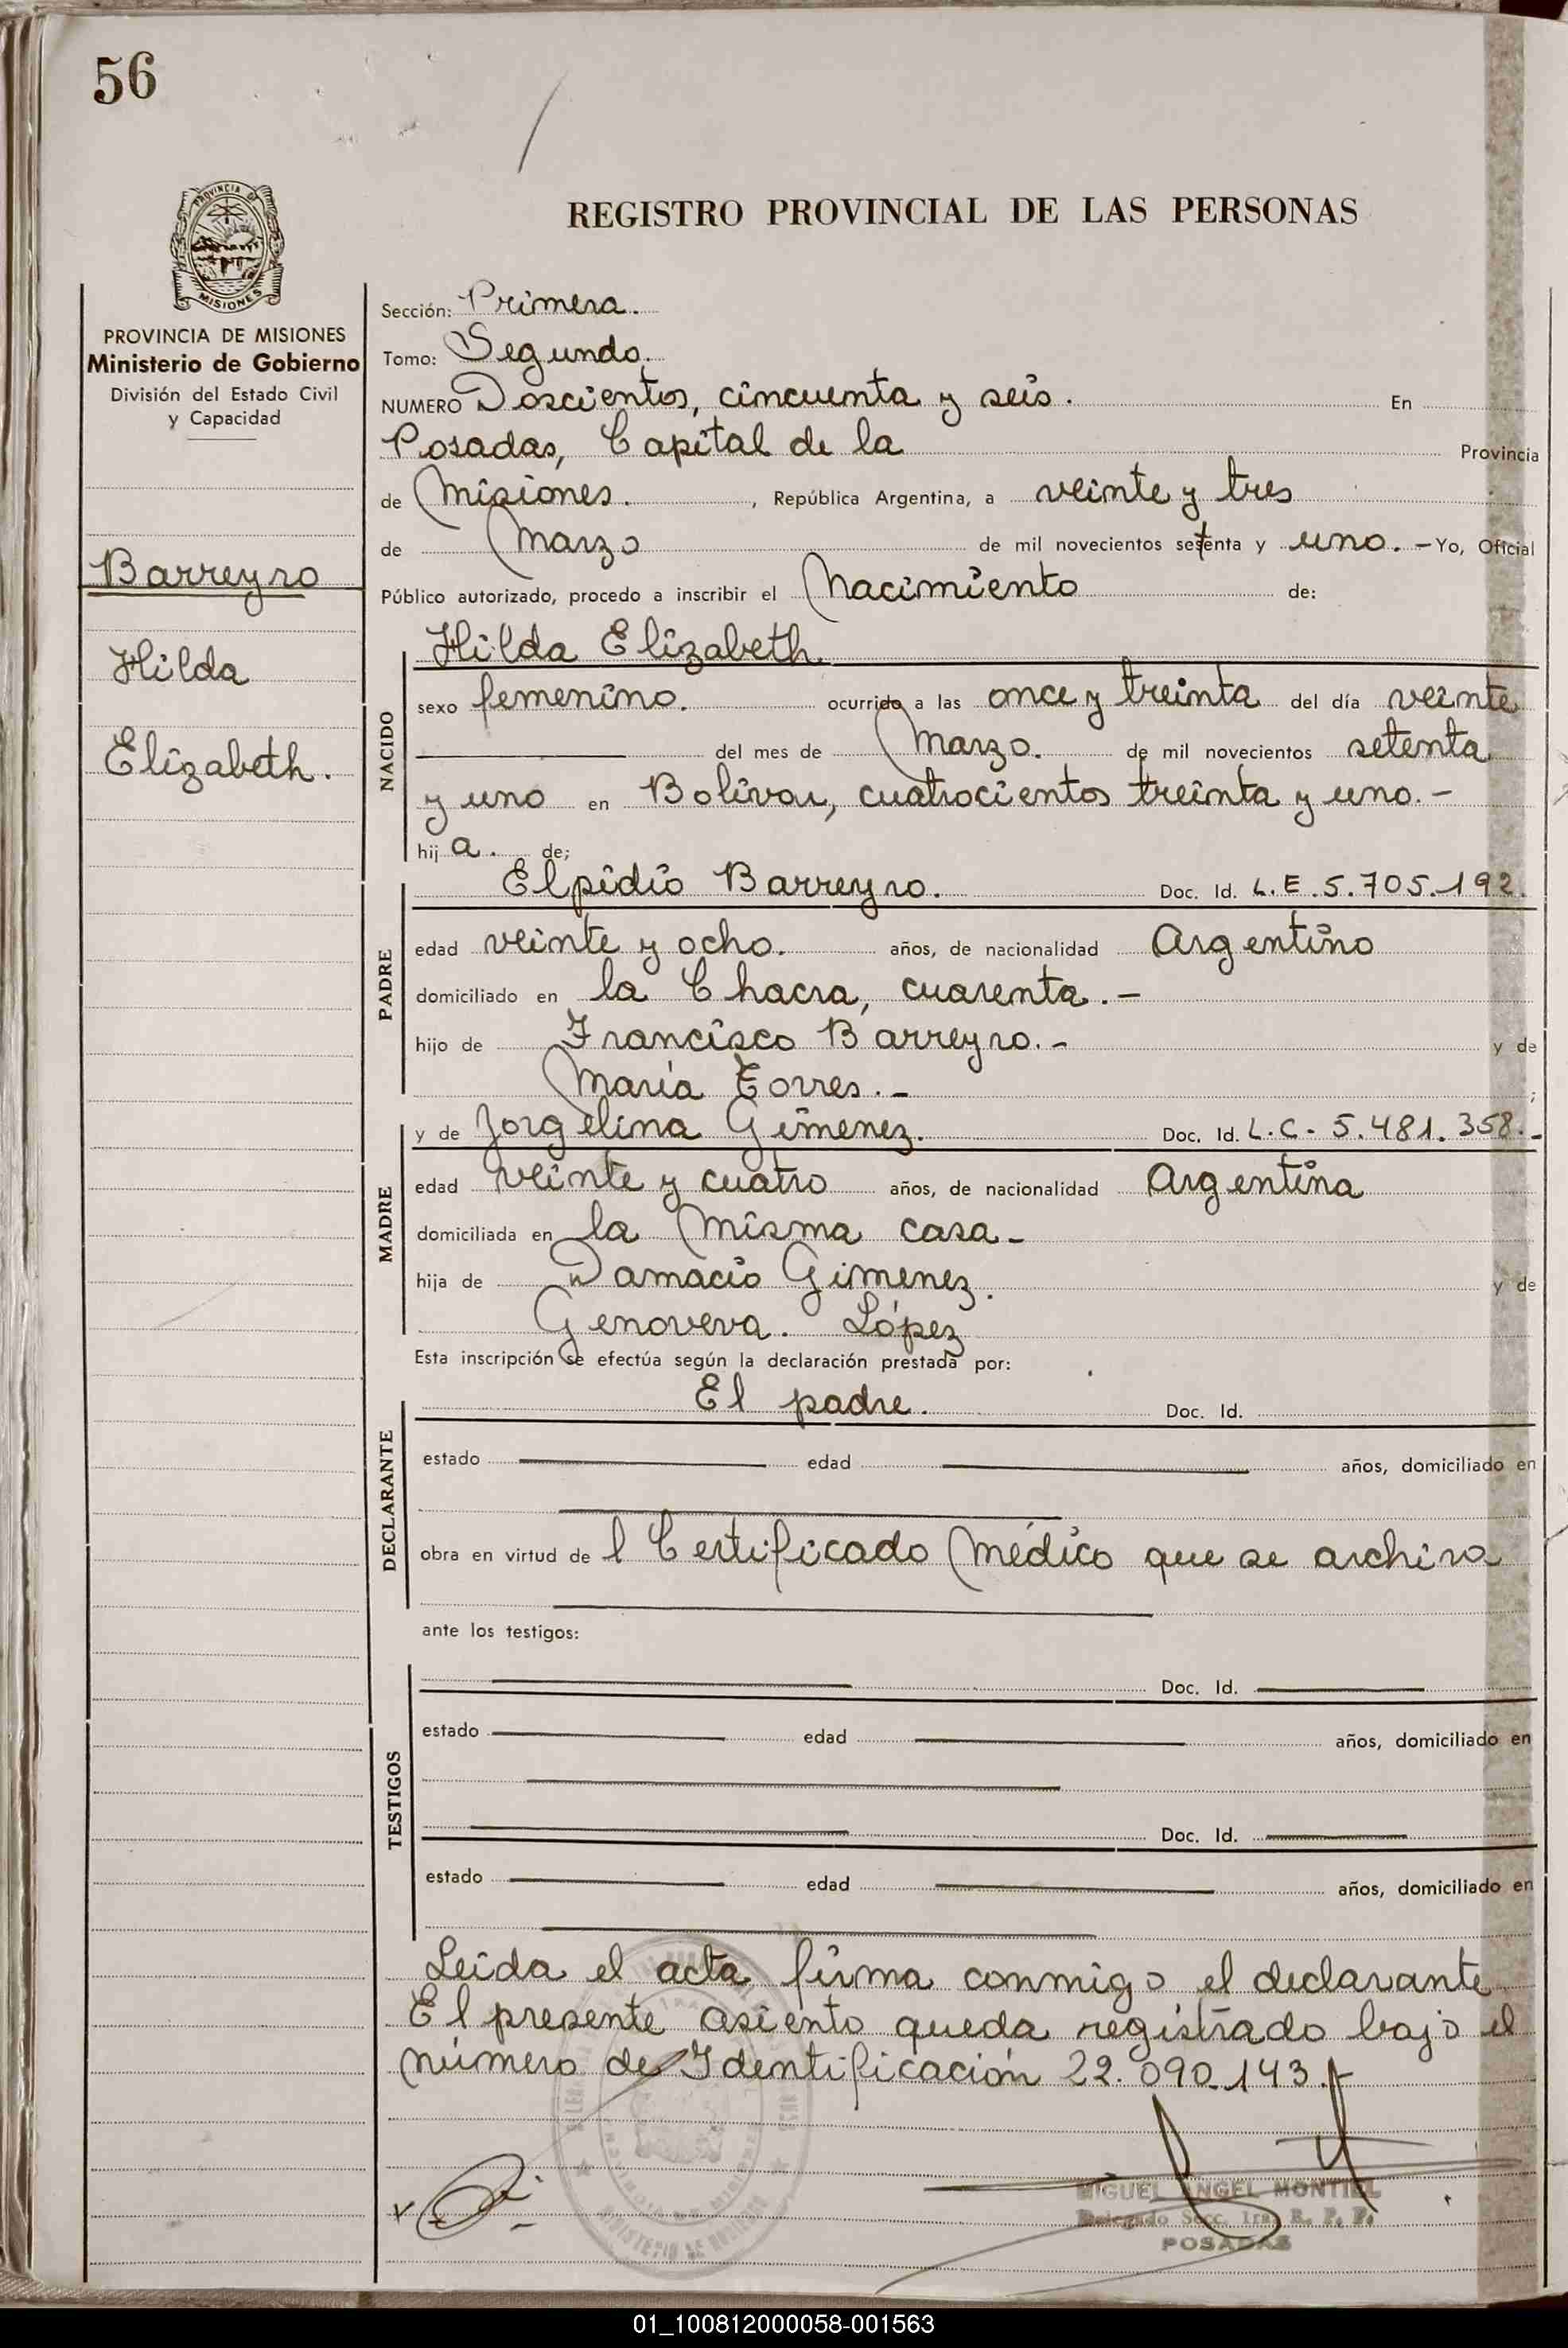 56
PROVINCIA DE
MISIONES
REGISTRO PROVINCIAL DE LAS PERSONAS
PROVINCIA DE MISIONES
Ministerio de Gobierno
División del Estado Civil
y Capacidad
Barreyro
Hilda
Elizabeth.
Sección: Primera.
Tomo: Segundo.
NUMERO Doscientos, cincuenta y seis. En
Posadas, Capital de la Provincia
de Misiones. , República Argentina, a veinte y tres
de Marzo de mil novecientos setenta y uno. - Yo, Oficial
Público autorizado, procedo a inscribir el Nacimiento de:
NACIDO
Hilda Elizabeth.
sexo femenino. ocurrido a las once y treinta del día veinte
del mes de Marzo. de mil novecientos setenta
y uno en Bolívar, cuatrocientos treinta y uno. -
hij a. de;
PADRE
Elpidio Barreyro. Doc. Id. L.E. 5.705.192.
edad veinte y ocho. años, de nacionalidad Argentino
domiciliado en la Chacra, cuarenta. -
hijo de Francisco Barreyro. - y de
María Torres. - ;
MADRE
y de Jorgelina Gimenez. Doc. Id. L.C. - 5.481.358. -
edad veinte y cuatro años, de nacionalidad Argentina
domiciliada en la Misma casa -
hija de Damacio Gimenez. y de
Genoveva. López
Esta inscripción se efectúa según la declaración prestada por:
DECLARANTE
El padre. Doc. Id.
estado edad años, domiciliado en
obra en virtud de l Certificado Médico que se archiva
ante los testigos:
TESTIGOS
Doc. Id.
estado edad años, domiciliado en
Doc. Id.
estado edad años, domiciliado en
Leida el acta firma conmigo el declarante
El presente asiento queda registrado bajo el
número de Identificación 22.090.143.-
MIGUEL ANGEL MONTIEL
Delegado Secc. 1ra. R. P. P.
POSADAS
MINISTERIO DE GOBIERNO
01_100812000058-001563